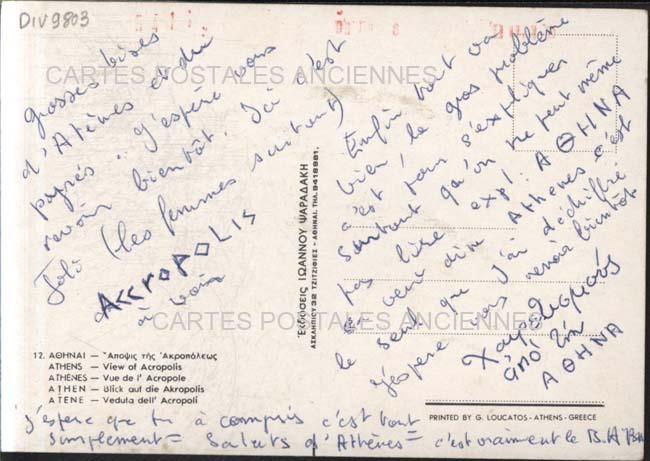 DIV9803
CARTES POSTALES ANCIENNES
grosses bises
d'Athènes et du
J'espère vous
revoir bientôt. Ici c'est
Joli (les femmes surtout)
ACCROPOLIS
à voir
Enfin tout va
bien, le gros problème
c'est pour s'expliquer
surtout qu'on ne peut même
pas lire exp: ΑΘΗΝΑ
ce veut dire Athènes c'est
le seul que j'ai déchiffré
j'espère vous revoir bientôt
Χαιρετισμούς
ἀπό τήν
ΑΘΗΝΑ
Ἐκδόσεις ΙΩΑΝΝΟΥ ΨΑΡΑΔΑΚΗ
ΑΣΚΛΗΠΙΟΥ 32 ΤΖΙΤΖΙΦΙΕΣ - ΑΘΗΝΑΙ. ΤΗΛ. 9418981.
CARTES POSTALES ANCIENNES
12. ΑΘΗΝΑΙ — Ἄποψις τῆς Ἀκροπόλεως
ATHENS — View of Acropolis
ATHÈNES — Vue de l' Acropole
ATHEN — Blick auf die Akropolis
ATENE — Veduta dell' Acropoli
PRINTED BY G. LOUCATOS - ATHENS - GREECE
j'espère que tu à compris c'est tout
simplement = Saluts d'Athènes = c'est vraiment le B.A